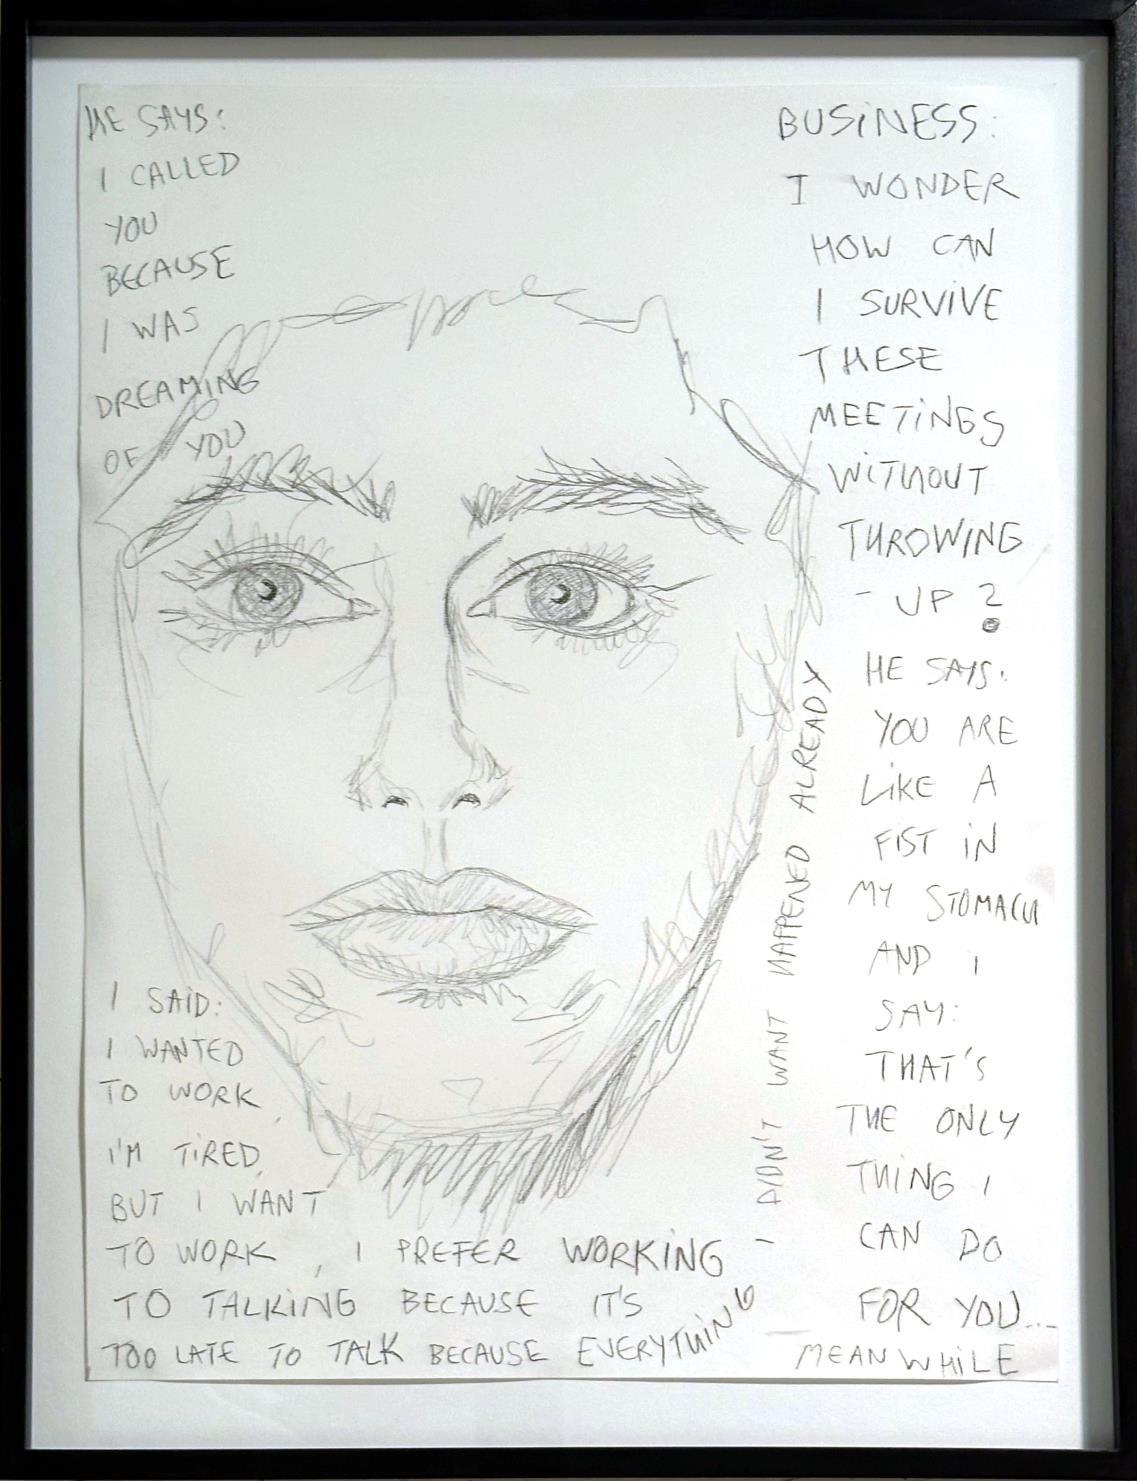 HE SAYS:
I CALLED
YOU
BECAUSE
I WAS
DREAMING
OF YOU
I SAID:
I WANTED
TO WORK,
I'M TIRED,
BUT I WANT
TO WORK, I PREFER WORKING
TO TALKING BECAUSE IT'S
TOO LATE TO TALK BECAUSE EVERYTHING
I DIDN'T WANT HAPPENED ALREADY
MEANWHILE
BUSINESS:
I WONDER
HOW CAN
I SURVIVE
THESE
MEETINGS
WITHOUT
THROWING
- UP?
HE SAYS:
YOU ARE
LIKE A
FIST IN
MY STOMACH
AND I
SAY:
THAT'S
THE ONLY
THING I
CAN DO
FOR YOU...